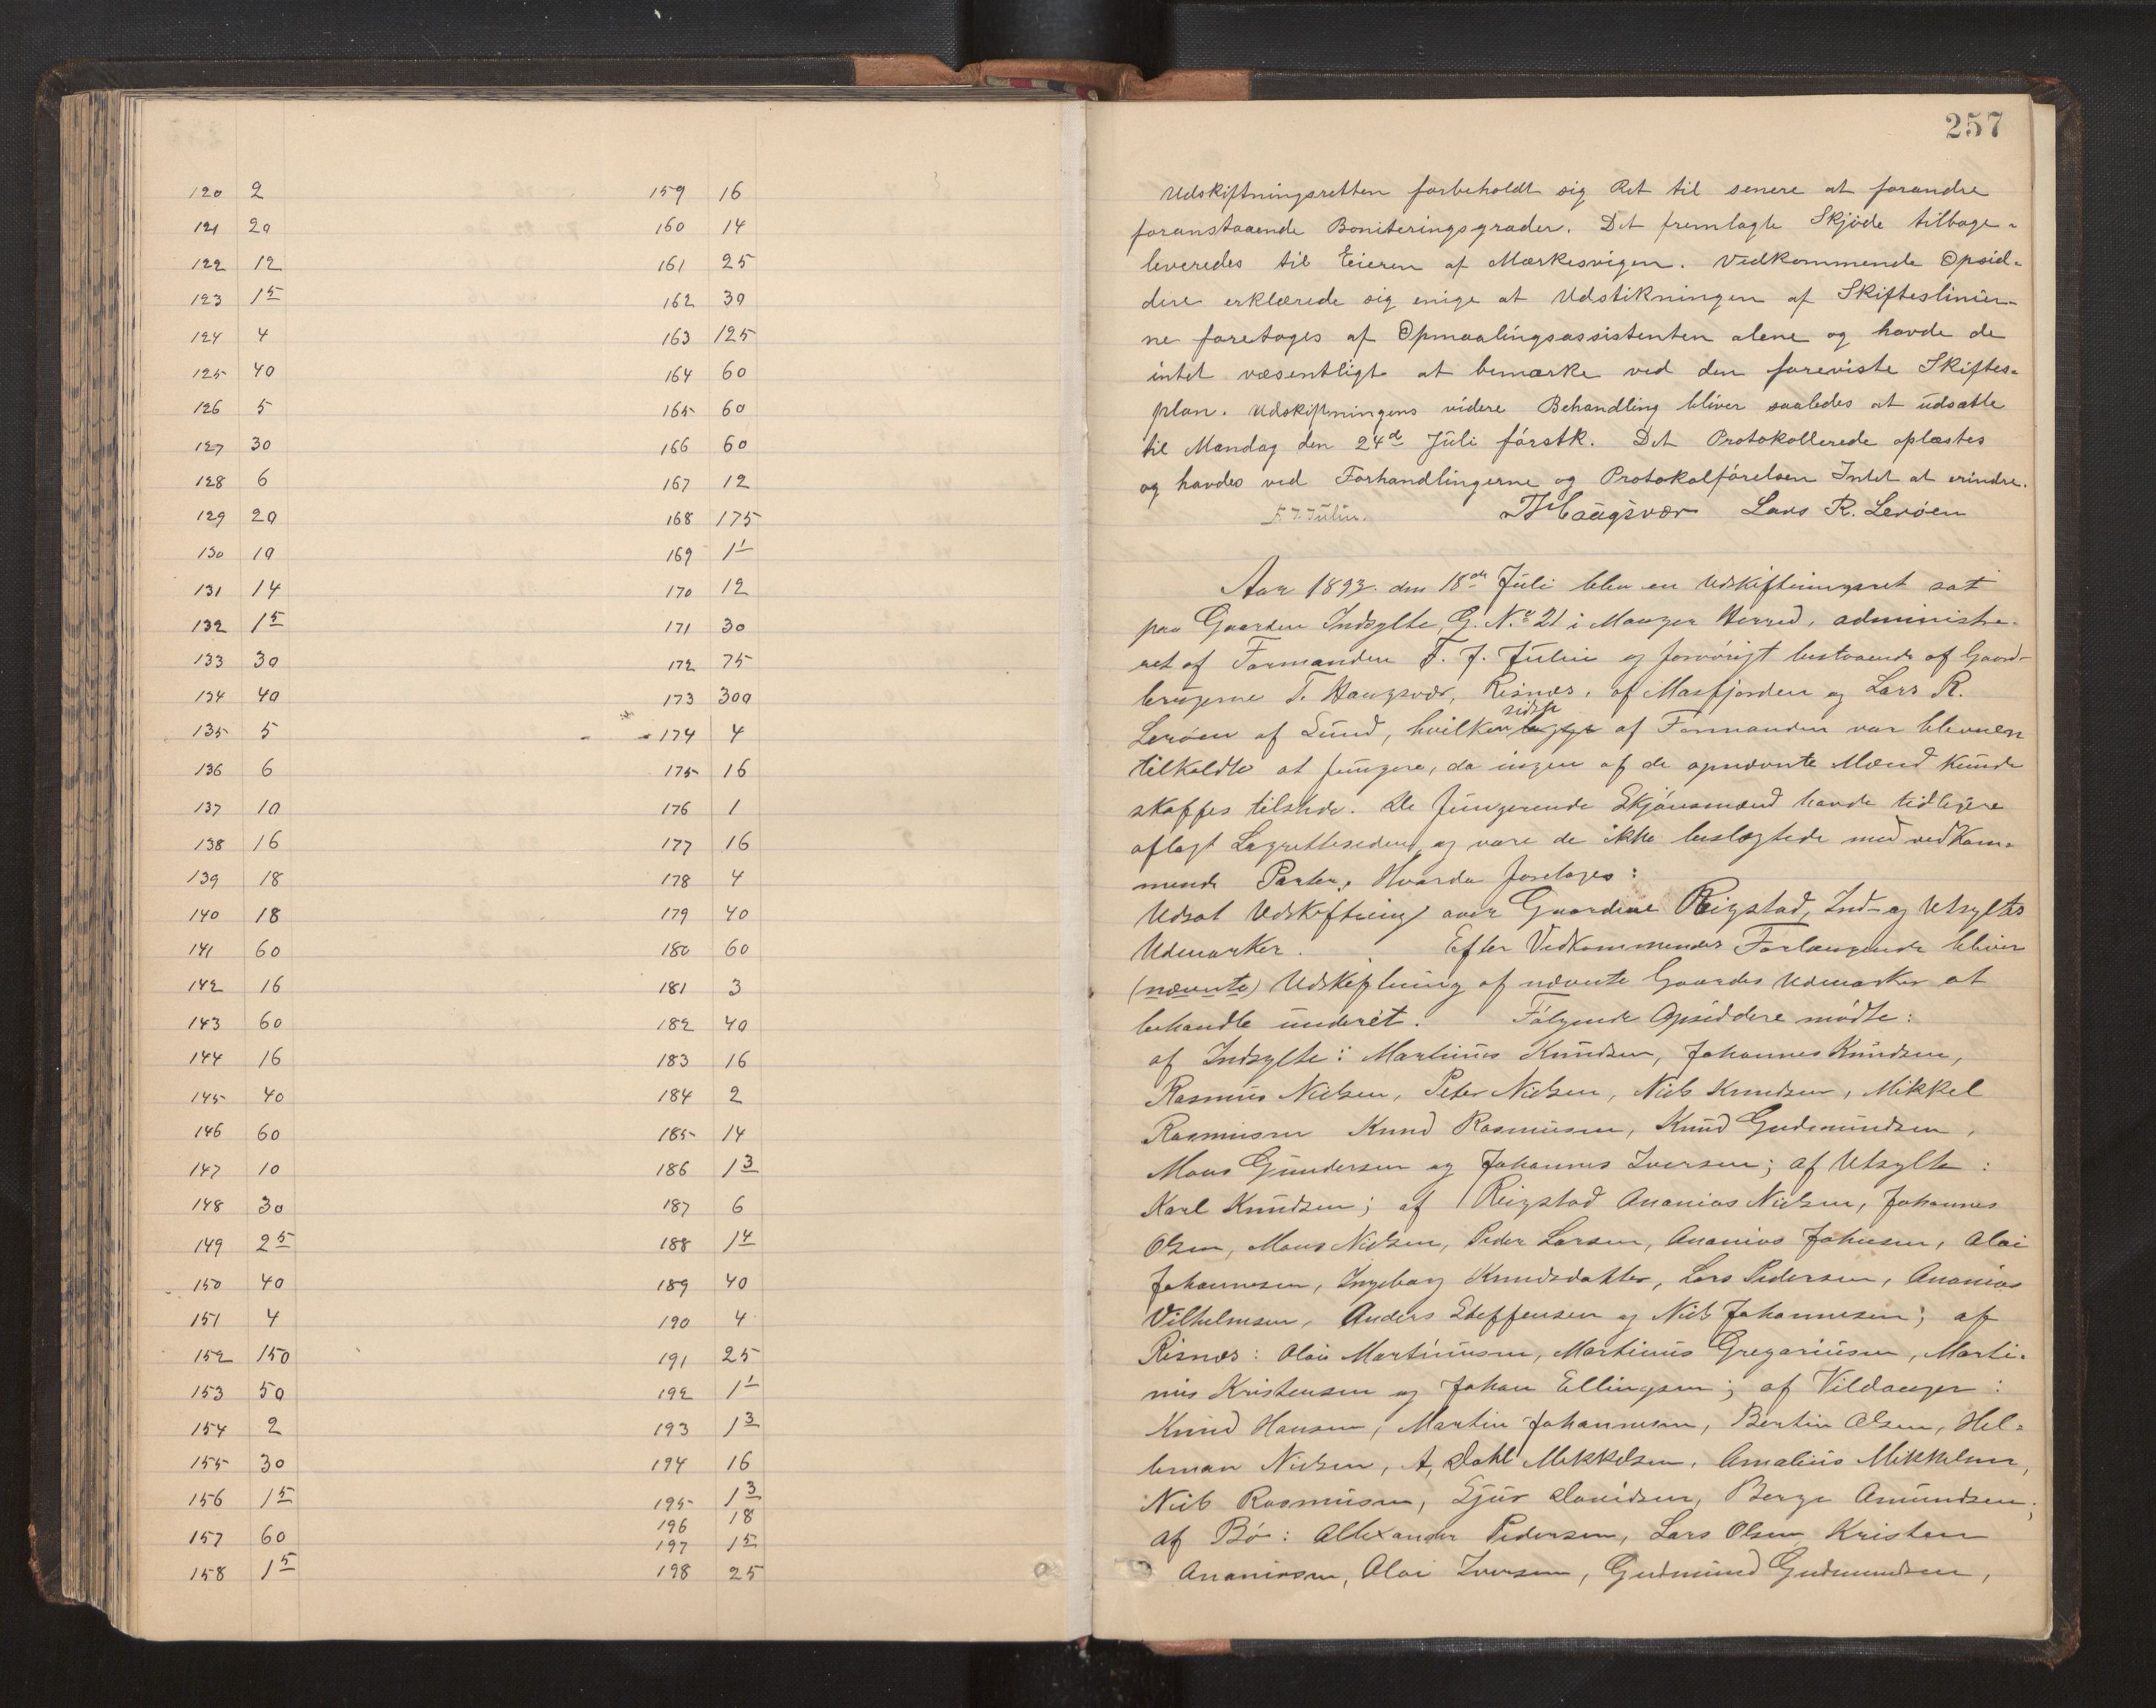 120 2
121 20
122 12
123 15
124 4
125 40
126 5
127 30
128 6
129 20
130 10
131 14
132 15
133 30
134 40
135 5
136 6
137 10
138 16
139 18
140 18
141 60
142 16
143 60
144 16
145 40
146 60
147 10
148 30
149 25
150 40
151 4
152 150
153 50
154 2
155 30
156 15
157 60
158 15
159 16
160 14
161 25
162 30
163 125
164 60
165 60
166 60
167 12
168 175
169 11
170 12
171 30
172 75
173 300
174 4
175 16
176 1
177 16
178 4
179 40
180 60
181 3
182 40
183 16
184 2
185 14
186 13
187 6
188 14
189 40
190 4
191 25
192 11
193 13
194 16
195 13
196 18
197 15
198 25
257
Udskiftningsretten forbeholdt sig Ret til senere at forandre
foranstaaende Boniteringsgrader. Det fremlagte Skjøde tilbage-
leveredes til Eieren af Markesvigen. Vedkommende Opsid-
dere erklærede sig enige at Udstikningen af Skifteslinier-
ne foretages af Opmaalingsassistenten alene og havde de
intet væsentligt at bemærke ved den foreviste Skiftes-
plan. Udskiftningens videre Behandling bliver saaledes at udsætte
til Mandag den 24de Juli førstk. Det Protokollerede oplæstes
og havdes ved Forhandlingerne og Protokolførelsen Intet at erindre.
F. J. Julin. T Haugsvær Lars R. Lerøen
Aar 1893 den 18de Juli blev en Udskiftningsret sat
paa Gaarden Indsylte, G. No 21 i Manger Herred, administre-
ret af Formanden F. J. Julin og forøvrigt bestaaende af Gaard-
brugerne T. Haugsvær, Risnes, af Masfjorden og Lars R.
Lerøen af Sund, hvilken sidste af Formanden var bleven
tilkaldte at fungere, da ingen af de opnævnte Mænd kunde
skaffes tilstede. De fungerende Skjønsmænd havde tidligere
aflagt Lagretteseden, og vare de ikke beslægtede med vedkom-
mende Parter, Hvorda foretages:
Udsat Udskiftning over Gaardene Reigstad, Ind- og Utsyltes
Udmarker. Efter Vedkommendes Forlangende bliver
(nævnte) Udskiftning af nævnte Gaardes Udmarker at
behandle underét. Følgende Opsiddere mødte:
af Indsylte: Martinus Knudsen, Johannes Knudsen,
Rasmus Nielsen, Peter Nielsen, Niels Knudsen, Mikkel
Rasmusen Knud Rasmusen, Knud Gudmundsen,
Mons Gundersen og Johannes Iversen; af Utsylte:
Karl Knudsen; af Reigstad Ananias Nielsen, Johannes
Olsen, Mons Nielsen, Peder Larsen, Ananias Johnsen, Olai
Johannesen, Ingeborg Knudsdatter, Lars Pedersen, Ananias
Vilhelmsen, Anders Steffensen og Niels Johannesen; af
Risnes: Olai Martinusen, Martinus Gregoriusen, Marti-
nus Kristensen og Johan Ellingsen; af Vildanger:
Knud Hansen, Martin Johannesen, Bertin Olsen, Hil-
leman Nielsen, A, Dahl Mikkelsen, Amalius Mikkelsen,
Niels Rasmusen, Sjur Davidsen, Berge Amundsen;
af Bø: Allexander Pedersen, Lars Olsen Kristen
Ananiasen, Olai Iversen, Gudmund Gudmundsen,